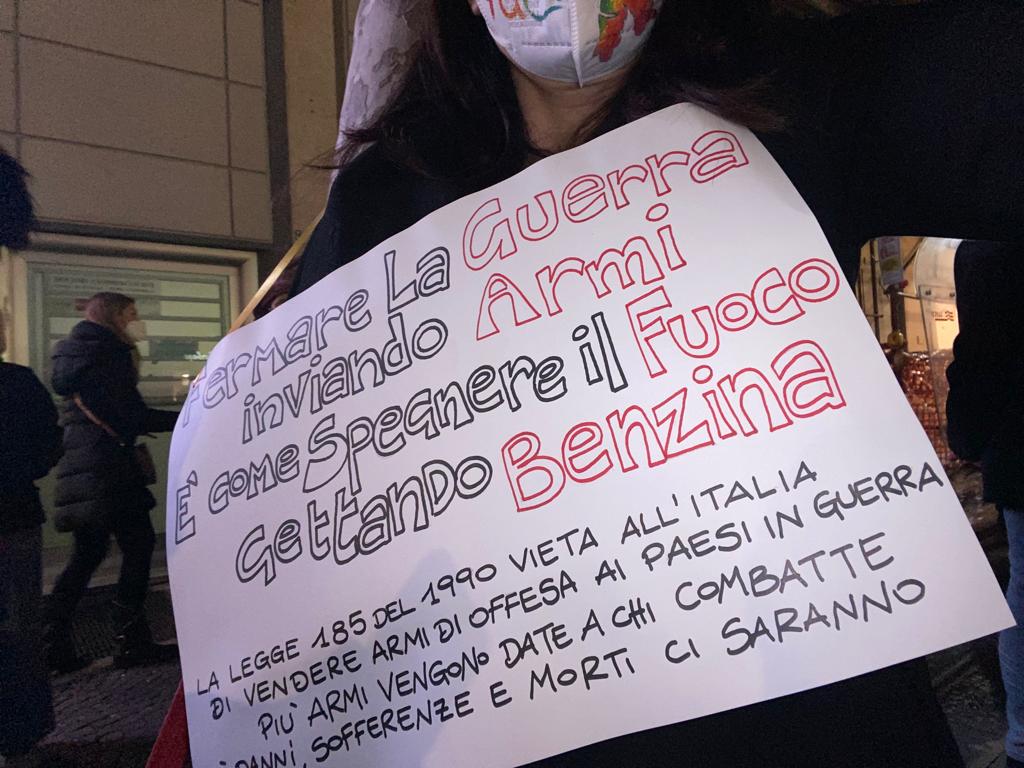 Fermare La Guerra
inviando Armi
E' come Spegnere il Fuoco
Gettando Benzina
LA LEGGE 185 DEL 1990 VIETA ALL'ITALIA
DI VENDERE ARMI DI OFFESA AI PAESI IN GUERRA
PIÙ ARMI VENGONO DATE A CHI COMBATTE
DANNI, SOFFERENZE E MORTI CI SARANNO